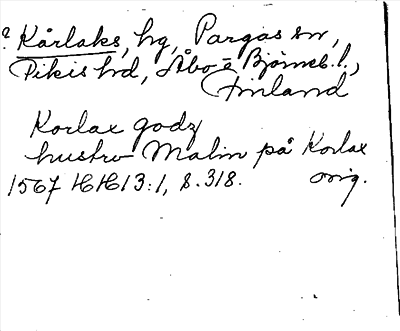 ? Kårlaks, hg, Pargas sn,
Pikis hd, Åbo o Björneb. l.,
Finland
Korlax godz
hustru Malin på Korlax
1567 HH 3:1, s. 318. orig.